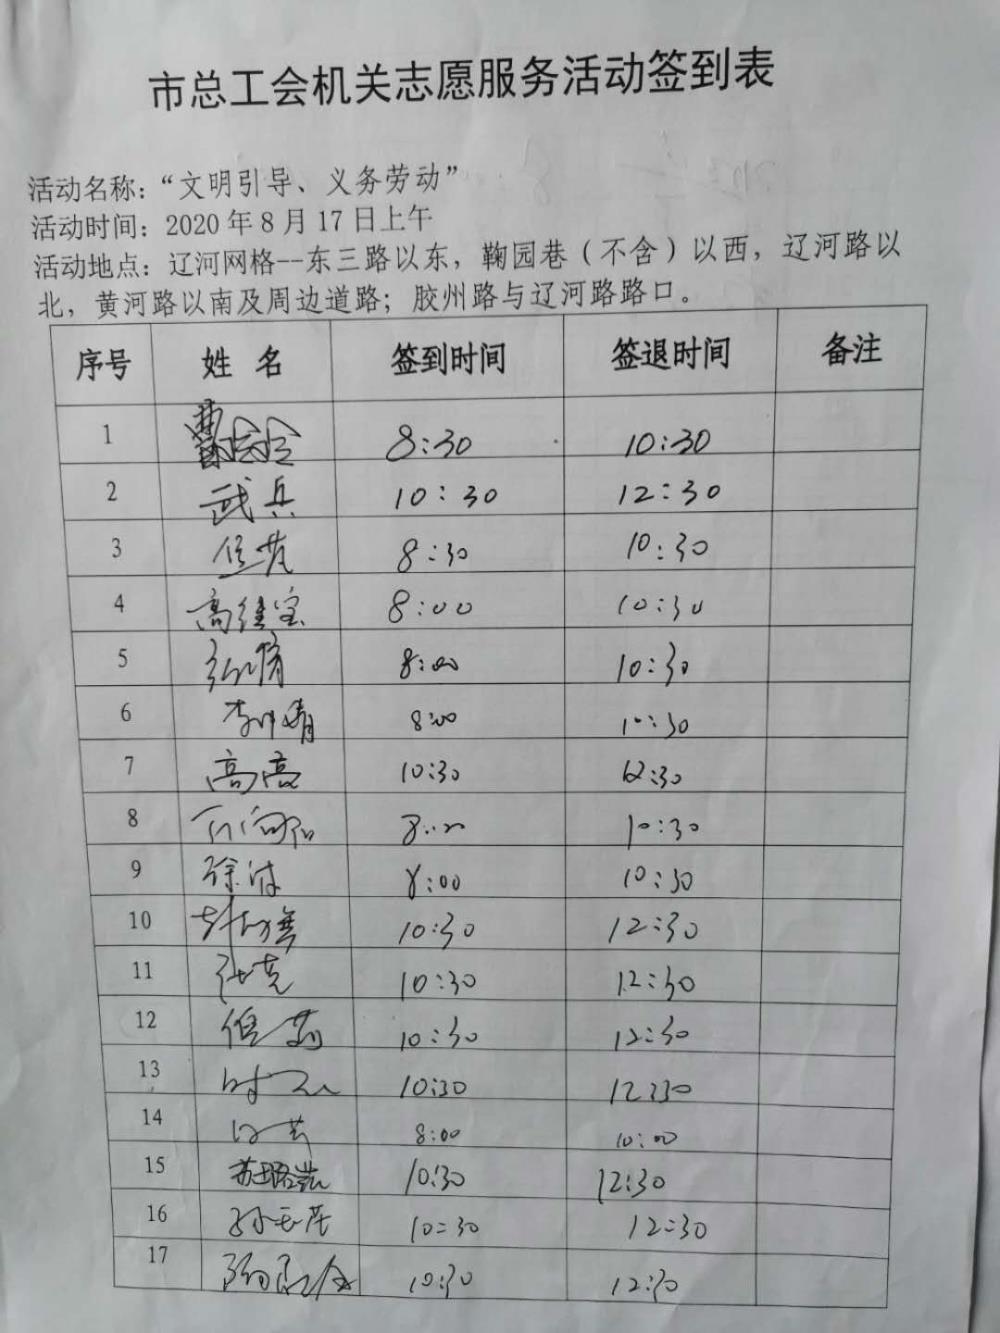 市总工会机关志愿服务活动签到表
活动名称：“文明引导、义务劳动”
活动时间：2020年8月17日上午
活动地点：辽河网格--东三路以东，鞠园巷（不含）以西，辽河路以
北，黄河路以南及周边道路；胶州路与辽河路路口。
序号 姓 名 签到时间 签退时间 备注
1 8:30 10:30
2 武兵 10:30 12:30
3 8:30 10:30
4 高继宝 8:00 10:30
5 8:00 10:30
6 8:00 10:30
7 高亮 10:30 12:30
8 8:00 10:30
9 徐波 8:00 10:30
10 10:30 12:30
11 10:30 12:30
12 10:30 12:30
13 10:30 12:30
14 8:00 10:00
15 10:30 12:30
16 10:30 12:30
17 10:30 12:30